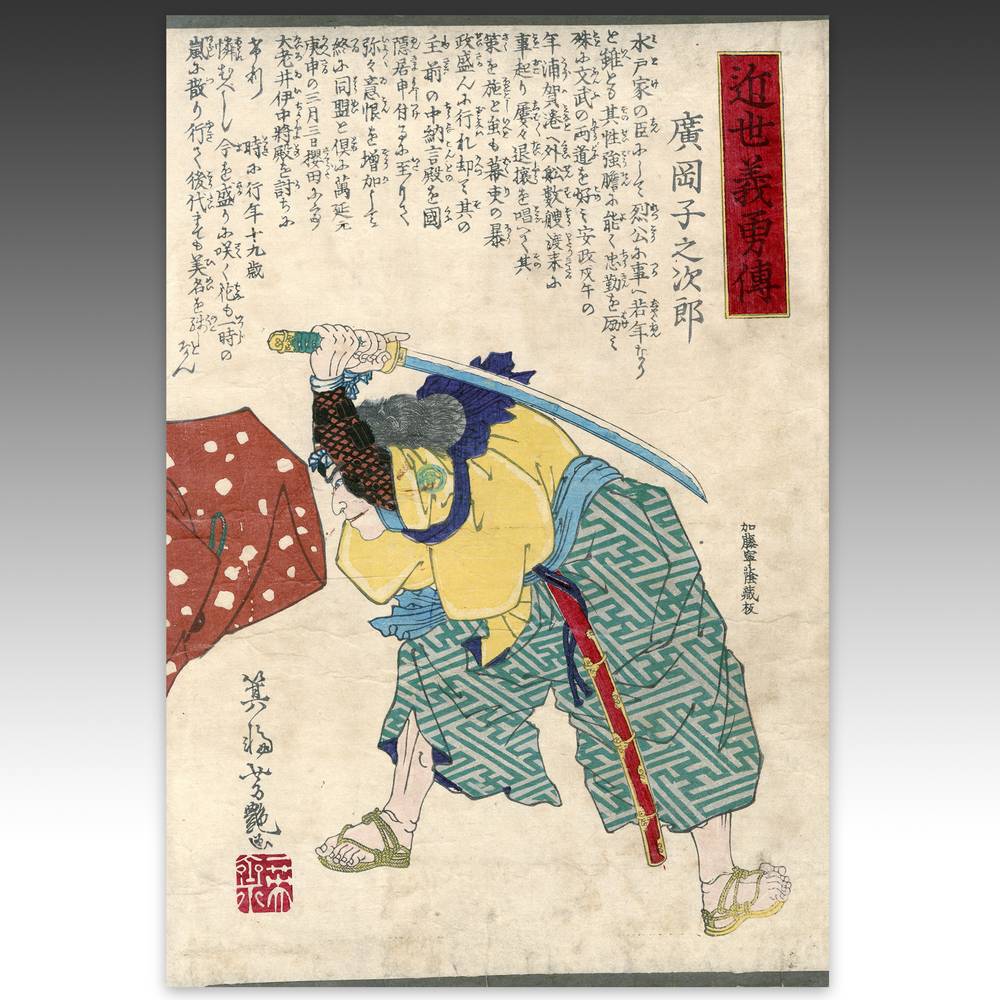 近世義勇傳
廣岡子之次郎
水戸家の臣にして烈公に事へ若年なり
と雖とも其性強膽に能く忠勤を励み
殊に文武の両道を好み安政戊午の
年浦賀港へ外舩数艘渡来に
事起り屡々退攘を唱へて其
策を施と虽も幕吏の暴
政盛んに行れ却て其の
主前の中納言殿を國
隠居申付るに至りて
弥々意恨を増加して
終に同盟と倶に萬延元
庚申の三月三日櫻田に於
大老井伊中将殿を討ちに
けり 時に行年十九歳
憐むべし今を盛りに咲く花も一時の
嵐に散り行く後代までも美名を残
しとなん
加藤寧蔭蔵板
芳艶画